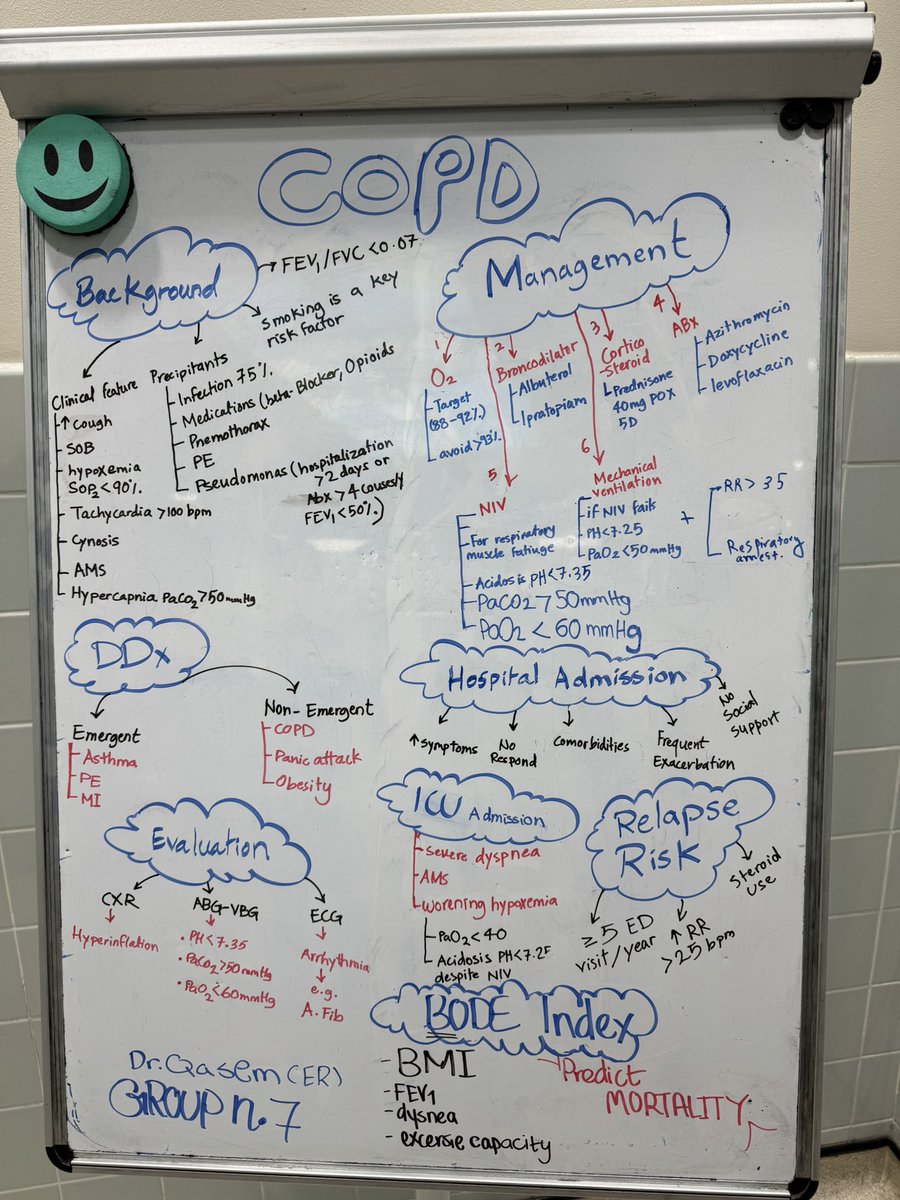 COPD
Background
FEV₁/FVC <0.07
Smoking is a key
risk factor
Clinical feature
↑ Cough
SOB
hypoxemia
SOP₂ <90%
Tachycardia >100 bpm
Cynosis
AMS
Hypercapnia PaCO₂ >50mmHg
Precipitants
Infection 75%
Medications (beta-Blocker, Opioids
Pnemothorax
PE
Pseudomonas (hospitalization
>2 days or
Abx >4 couses/y
FEV₁ <50%)
Management
1
O₂
Target
(88-92%)
avoid >93%
2
Broncodilator
Albuterol
Ipratopiam
3
Cortico
-Steroid
Prednisone
40mg POX
5D
4
ABx
Azithromycin
Doxycycline
levoflaxacin
5
NIV
For respiratory
muscle fatiuge
Acidosis PH<7.35
PaCO2 >50mmHg
PaO₂ < 60 mmHg
6
Mechanical
ventilation
if NIV fails
PH<7.25
PaO₂ <50mmHg
+
RR> 35
Respiratory
arrest.
DDx
Emergent
Asthma
PE
MI
Non-Emergent
COPD
Panic attack
Obesity
Hospital Admission
↑ Symptoms
No
Respond
Comorbidities
Frequent
Exacerbation
No
Social
Support
Evaluation
CXR
Hyperinflation
ABG-VBG
• PH<7.35
• PaCO₂ >50mmHg
• PaO₂ <60mmHg
ECG
Arrhythmia
e.g.
A. Fib
ICU Admission
Severe dyspnea
AMS
worening hypoxemia
PaO₂ <40
Acidosis PH<7.25
despite NIV
Relapse
Risk
≥5 ED
visit/year
↑ RR
>25 bpm
Steroid
use
BODE Index
- BMI
- FEV₁
- dysnea
- excersie capacity
Predict
MORTALITY
Dr. Qasem (ER)
GROUP n. 7